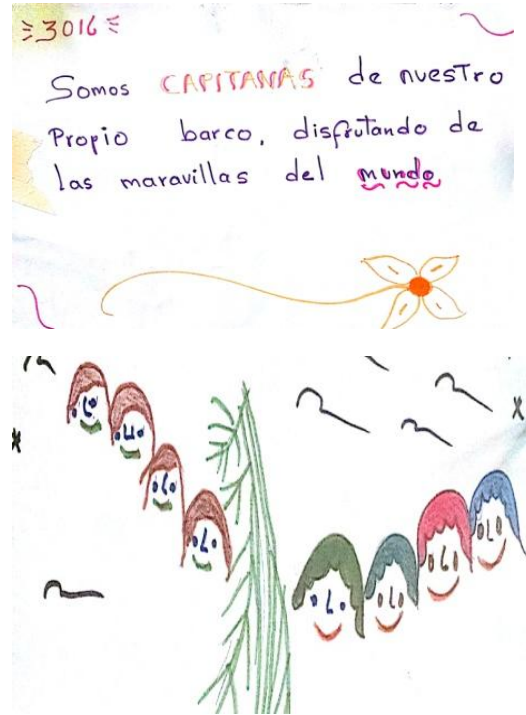 3016
Somos CAPITANAS de nuestro
Propio barco, disfrutando de
las maravillas del mundo